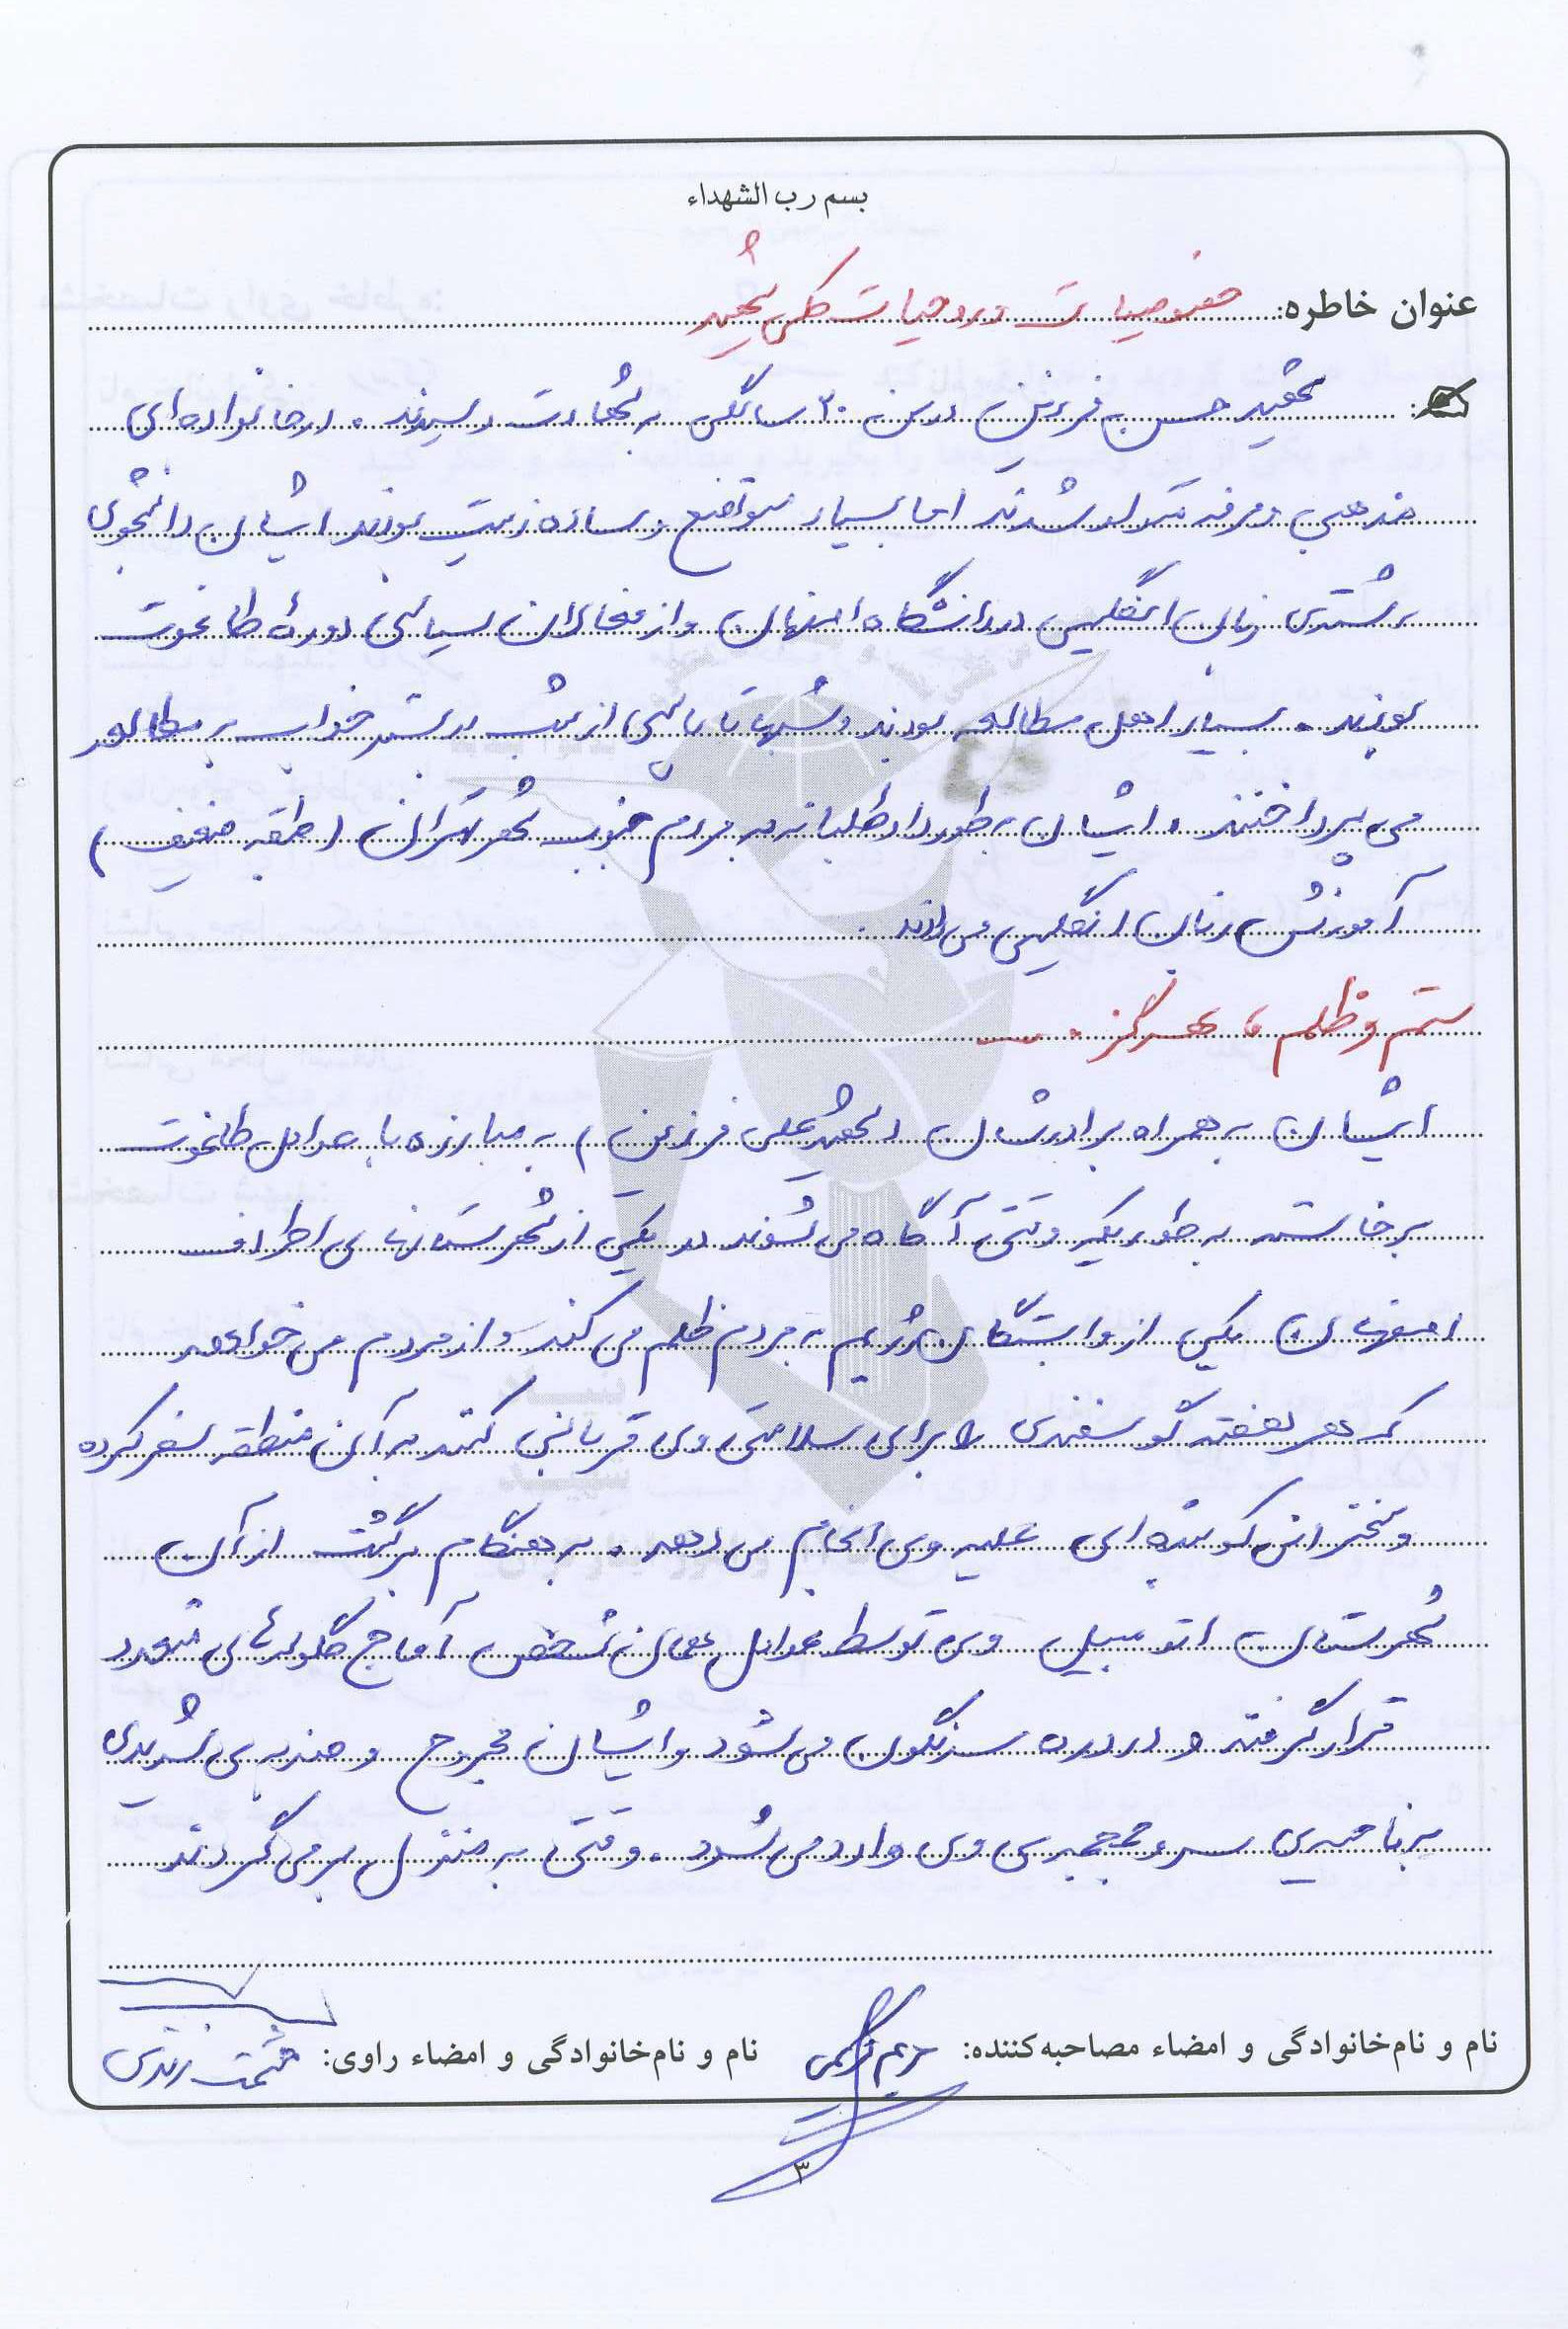 بسم رب الشهداء
عنوان خاطره: خصوصیات و روحیات کلی شهید
شهید حسن فرزین در سن ۳۰ سالگی به شهادت رسیدند. در خانواده ای
مذهبی و مرفه متولد شدند اما بسیار متواضع و ساده زیست بودند ایشان دانشجوی
رشته ی زبان انگلیسی در دانشگاه اصفهان و از فعالان سیاسی دورهٔ طاغوت
بودند. بسیار اهل مطالعه بودند و شبها تا پاسی از شب در بستر خواب به مطالعه
می پرداختند. ایشان به طور داوطلبانه به مردم جنوب شهر تهران (طبقه ضعیف)
آموزش زبان انگلیسی می دادند.
ستم و ظلم، هرگز.
ایشان به همراه برادرشان (شهید علی فرزین) به مبارزه با عوامل طاغوت
برخاسته به طوریکه وقتی آگاه می شوند در یکی از شهرستانهای اطراف
اصفهان یکی از وابستگان رژیم به مردم ظلم می کند و از مردم می خواهد
که هر هفته گوسفندی را برای سلامتی وی قربانی کنند به آن منطقه سفر کرده
و سخنرانی کوبنده ای علیه وی انجام می دهد. به هنگام برگشت از آن
شهرستان اتومبیل وی توسط عوامل همان شخص آماج گلوله های متعدد
قرار گرفته و در دره سرنگون می شود و ایشان مجروح و ضربه ی شدیدی
به ناحیه ی سر و جمجمه ی وی وارد می شود. وقتی به منزل بر می گردند
نام و نام‌خانوادگی و امضاء مصاحبه‌کننده: مریم
نام و نام‌خانوادگی و امضاء راوی: حشمت زندی
۳